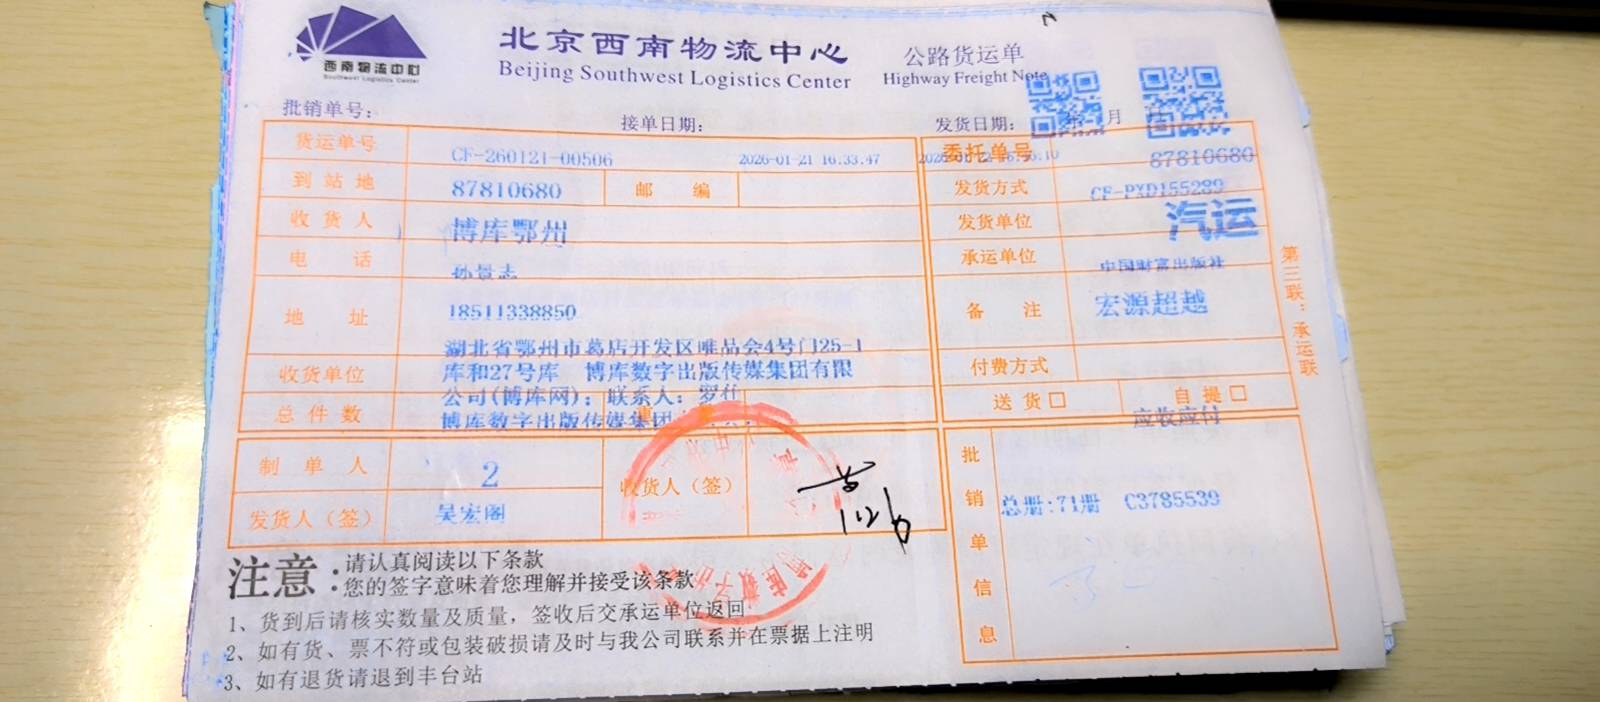 西南物流中心
Southwest Logistics Center
北京西南物流中心
Beijing Southwest Logistics Center
公路货运单
Highway Freight Note
批销单号:
接单日期:
发货日期: 月
货运单号 CF-260121-00506 2026-01-21 16.33.47
委托单号 87810680
到站地 87810680 邮编
发货方式 CF-PXD155289
收货人 博库鄂州
发货单位 汽运
电话 孙景志
承运单位 中国财富出版社
地址 18511338850
备注 宏源超越
湖北省鄂州市葛店开发区唯品会4号门25-1
收货单位 库和27号库 博库数字出版传媒集团有限
付费方式
公司(博库网); 联系人: 罗
送货□ 自提□
总件数 博库数字出版传媒集团
应收应付
制单人 2
收货人（签）
发货人（签） 吴宏阁
1126
批销单信息
总册:71册 C3785539
第三联：承运联
注意:
请认真阅读以下条款
您的签字意味着您理解并接受该条款
1、货到后请核实数量及质量，签收后交承运单位返回
2、如有货、票不符或包装破损请及时与我公司联系并在票据上注明
3、如有退货请退到丰台站